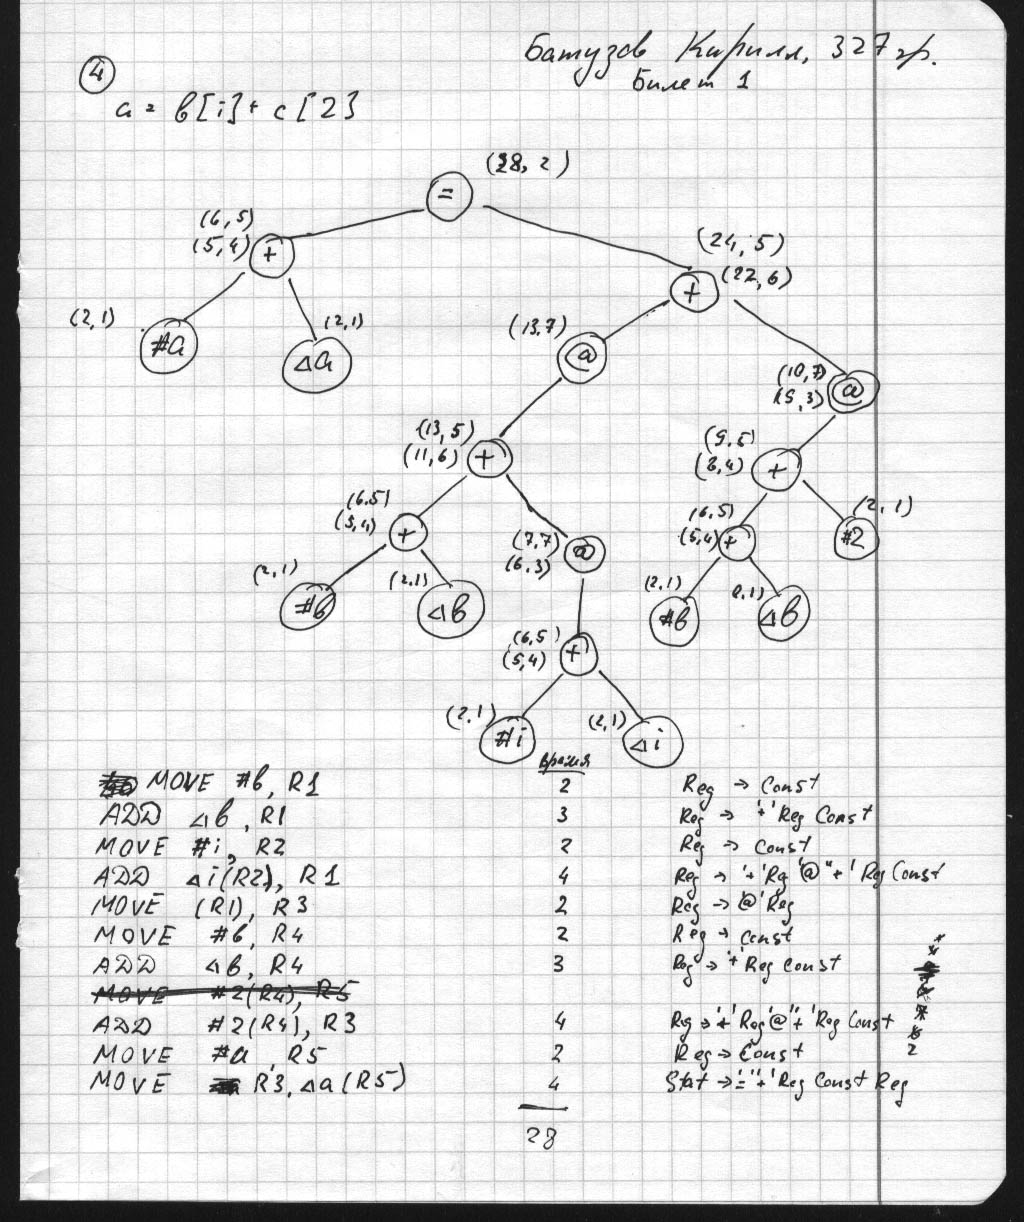 Батузов Кирилл, 327 гр.
Билет 1
4
a = b[i] + c[2]
(28, 2)
=
(6, 5)
(5, 4)
+
(24, 5)
(22, 6)
+
(2, 1)
#a
(2, 1)
Δa
(13, 7)
@
(10, 7)
(9, 3)
@
(13, 5)
(11, 6)
+
(9, 5)
(8, 4)
+
(6, 5)
(5, 4)
+
(7, 7)
(6, 3)
@
(6, 5)
(5, 4)
+
(2, 1)
#2
(2, 1)
#b
(2, 1)
Δb
(2, 1)
#b
(2, 1)
Δb
(6, 5)
(5, 4)
+
(2, 1)
#i
(2, 1)
Δi
время
MOVE #b, R1 2 Reg → Const
ADD Δb, R1 3 Reg → '+' Reg Const
MOVE #i, R2 2 Reg → Const
ADD Δi(R2), R1 4 Reg → '+' Reg '@' '+' Reg Const
MOVE (R1), R3 2 Reg → '@' Reg
MOVE #b, R4 2 Reg → Const
ADD Δb, R4 3 Reg → '+' Reg Const
MOVE #2(R4), R5
ADD #2(R4), R3 4 Reg → '+' Reg '@' '+' Reg Const
MOVE #a, R5 2 Reg → Const
MOVE R3, Δa(R5) 4 Stat → '=' '+' Reg Const Reg
28
2